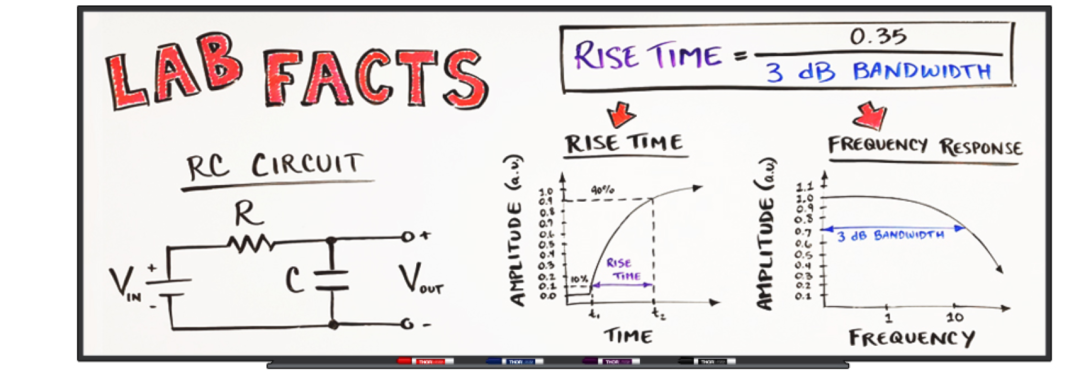 LAB FACTS
RISE TIME = 0.35
3 dB BANDWIDTH
RC CIRCUIT
R
V IN
+
-
C
+
-
V OUT
RISE TIME
AMPLITUDE (a.u)
1.0
0.9
0.8
0.7
0.6
0.5
0.4
0.3
0.2
0.1
0.0
90%
10%
RISE
TIME
t₁
t₂
TIME
FREQUENCY RESPONSE
AMPLITUDE (a.u)
1.1
1.0
0.9
0.8
0.7
0.6
0.5
0.4
0.3
0.2
0.1
3 dB BANDWIDTH
1
10
FREQUENCY
THORLABS
THORLABS
THORLABS
THORLABS